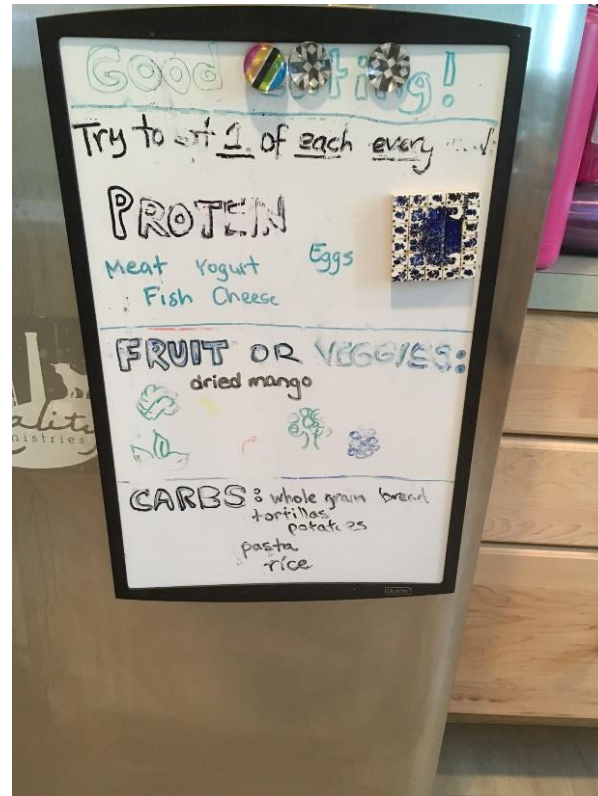 Good ting!
Try to 1 of each every
PROTEIN
Meat Yogurt Eggs
Fish Cheese
FRUIT OR VEGGIES:
dried mango
CARBS: whole grain bread
tortillas
potatoes
pasta
rice
ality
nistries
Quartet